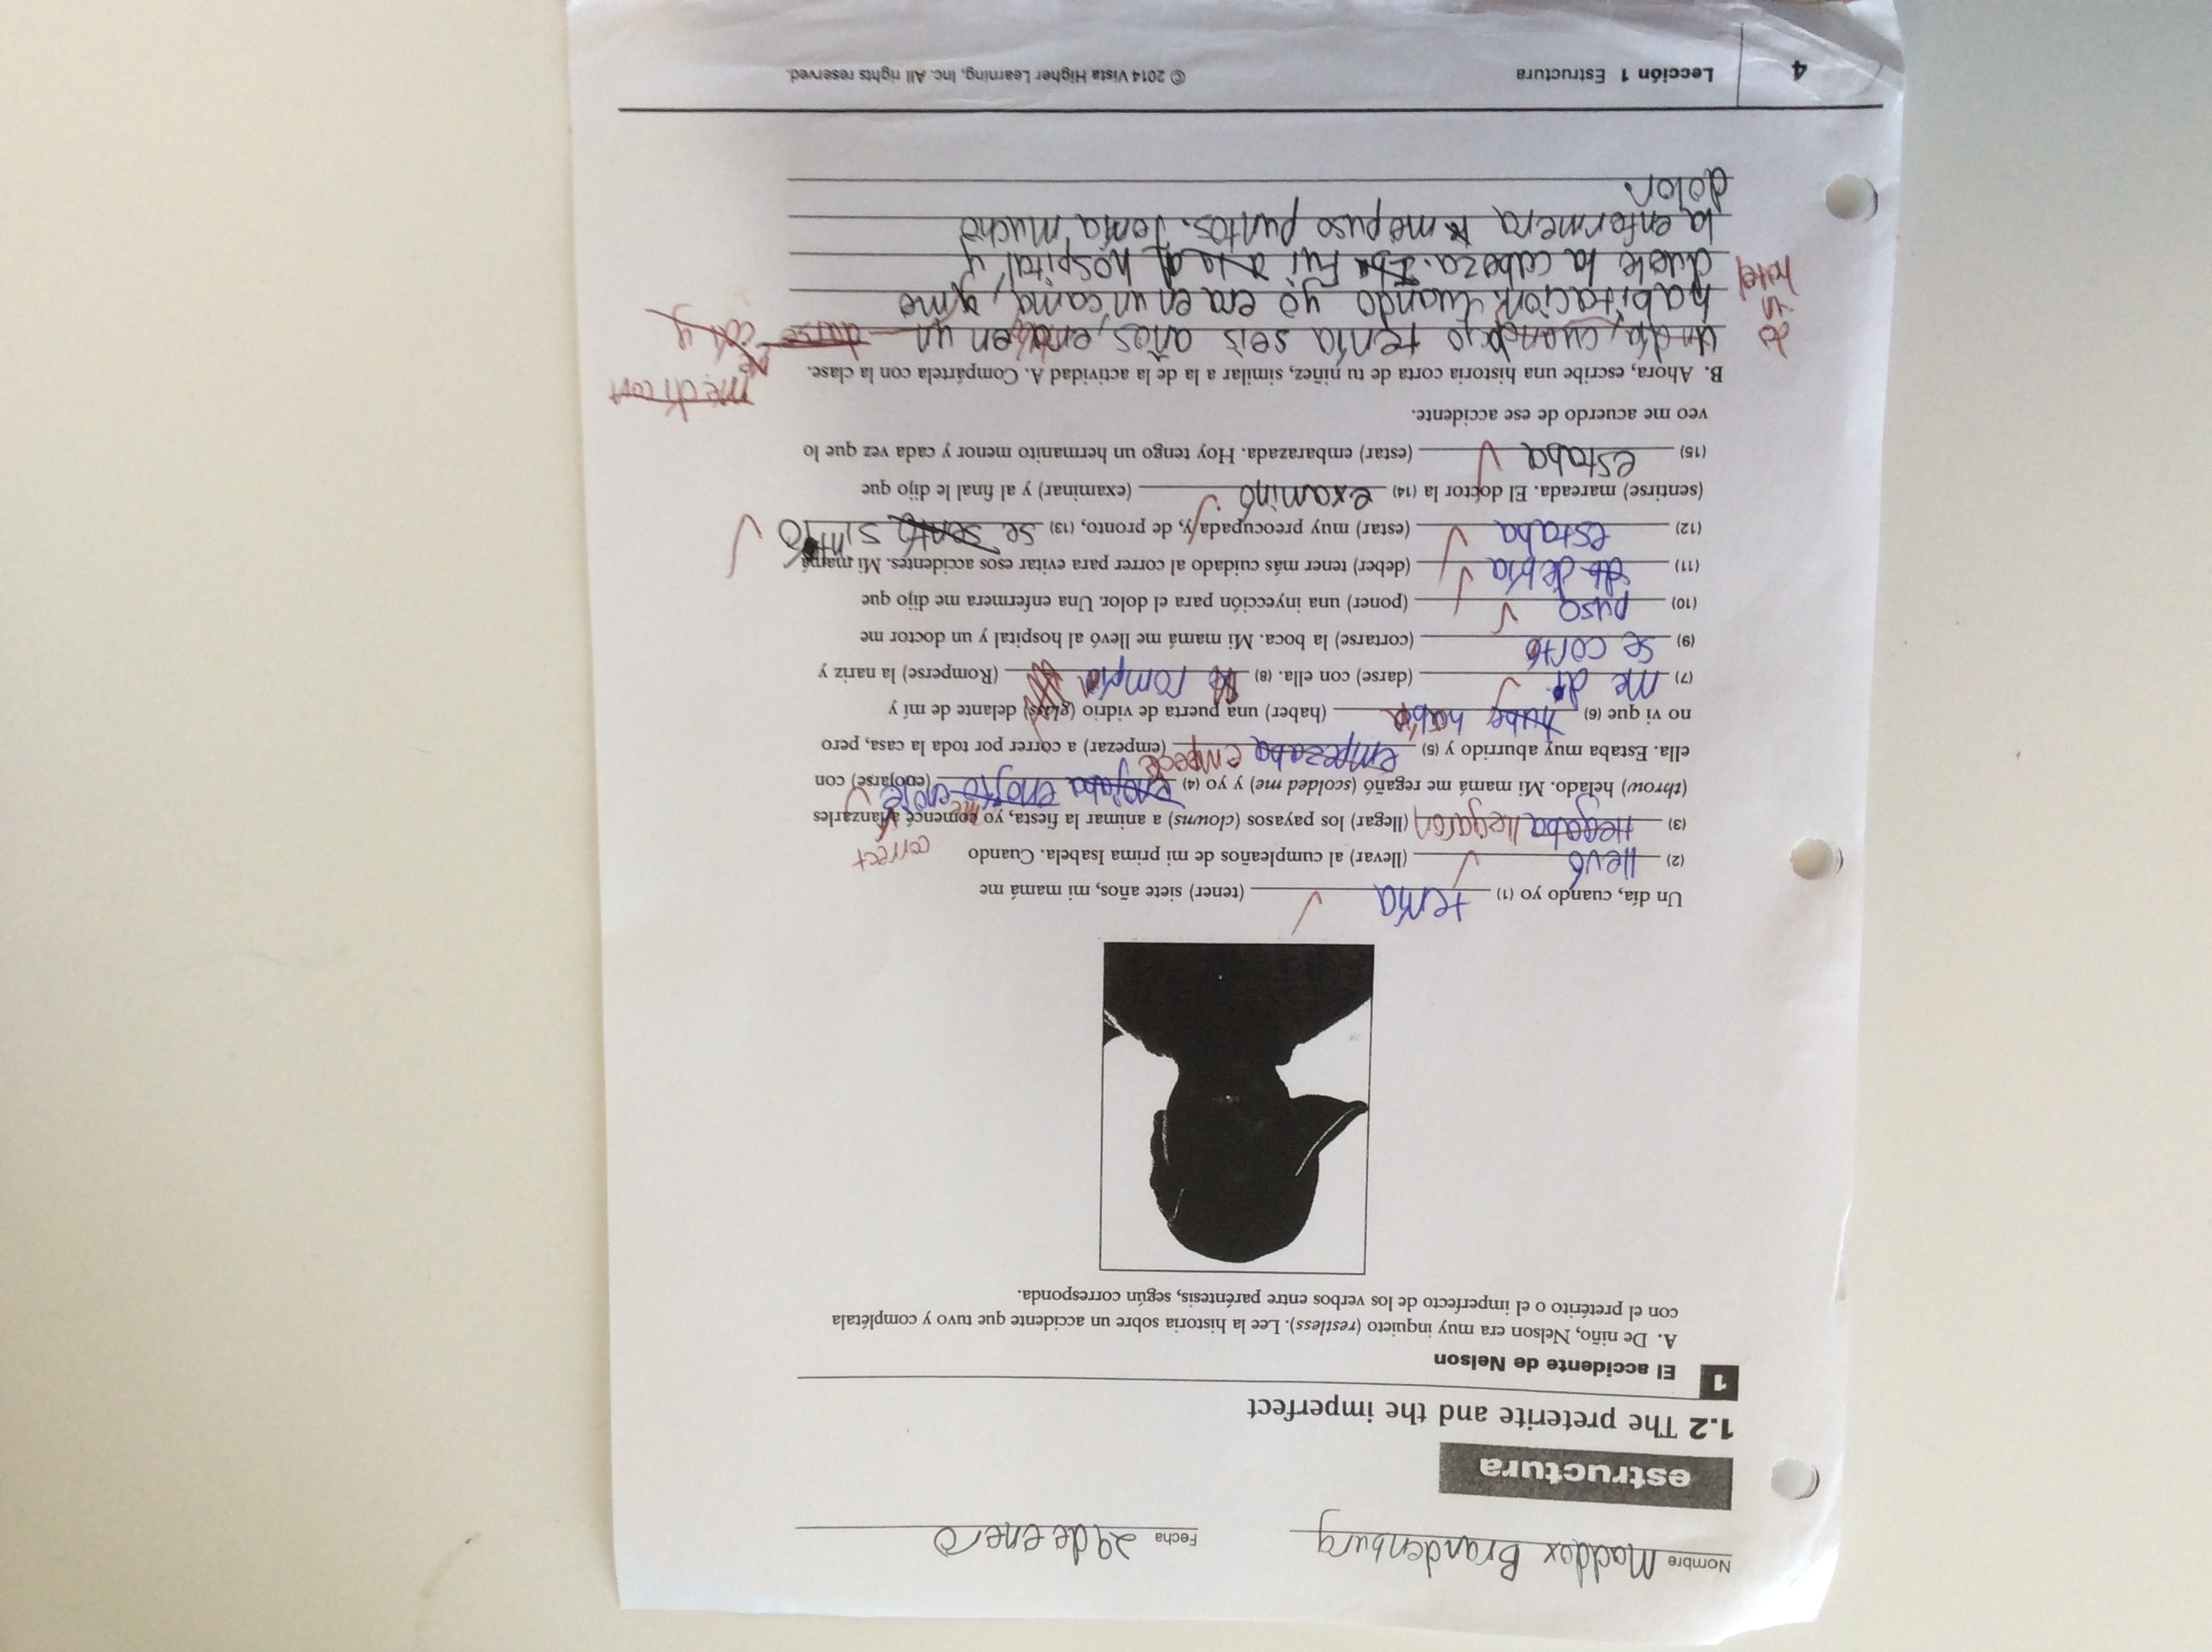 Nombre Maddox Brandenburg Fecha 29 de enero
estructura
1.2 The preterite and the imperfect
1 El accidente de Nelson
A. De niño, Nelson era muy inquieto (restless). Lee la historia sobre un accidente que tuvo y complétala
con el pretérito o el imperfecto de los verbos entre paréntesis, según corresponda.
Un día, cuando yo (1) tenía (tener) siete años, mi mamá me
(2) llevó (llevar) al cumpleaños de mi prima Isabela. Cuando correct
(3) llegaba llegaron (llegar) los payasos (clowns) a animar la fiesta, yo comencé a lanzarles
(throw) helado. Mi mamá me regañó (scolded me) y yo (4) enojaba enojó me enojé (enojarse) con
ella. Estaba muy aburrido y (5) empezaba empecé (empezar) a correr por toda la casa, pero
no vi que (6) hube había (haber) una puerta de vidrio (glass) delante de mí y
(7) me di (darse) con ella. (8) rompía (Romperse) la nariz y
(9) se cortó (cortarse) la boca. Mi mamá me llevó al hospital y un doctor me
(10) puso (poner) una inyección para el dolor. Una enfermera me dijo que
(11) debía (deber) tener más cuidado al correr para evitar esos accidentes. Mi mamá
(12) estaba (estar) muy preocupada y, de pronto, (13) se sintió
(sentirse) mareada. El doctor la (14) examinó (examinar) y al final le dijo que
(15) estaba (estar) embarazada. Hoy tengo un hermanito menor y cada vez que lo
veo me acuerdo de ese accidente.
me di con
B. Ahora, escribe una historia corta de tu niñez, similar a la de la actividad A. Compártela con la clase.
Un día, cuando yo tenía seis años, era en un darse
habitación cuando yo era en un cama, y me
de un hotel
duele la cabeza. Fui al hospital y
la enfermera me puso puntos. Tenía mucho
dolor.
4 Lección 1 Estructura © 2014 Vista Higher Learning, Inc. All rights reserved.